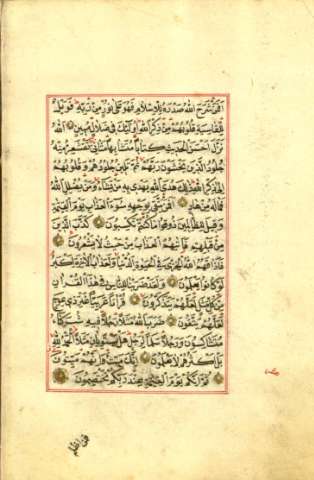 افمن شرح الله صدره للاسلام فهو على نور من ربه فويل
للقاسية قلوبهم من ذكر الله اولئك في ضلال مبين الله
نزل احسن الحديث كتابا متشابها مثاني تقشعر منه
جلود الذين يخشون ربهم ثم تلين جلودهم وقلوبهم
الى ذكر الله ذلك هدى الله يهدي به من يشاء ومن يضلل الله
فما له من هاد افمن يتقي بوجهه سوء العذاب يوم القيمة
وقيل للظالمين ذوقوا ما كنتم تكسبون كذب الذين
من قبلهم فاتيهم العذاب من حيث لا يشعرون
فاذاقهم الله الخزي في الحيوة الدنيا ولعذاب الاخرة اكبر
لو كانوا يعلمون ولقد ضربنا للناس في هذا القران
من كل مثل لعلهم يتذكرون قرانا عربيا غير ذي عوج
لعلهم يتقون ضرب الله مثلا رجلا فيه شركاء
متشاكسون ورجلا سلما لرجل هل يستويان مثلا الحمد لله
بل اكثرهم لا يعلمون انك ميت وانهم ميتون
ثم انكم يوم القيمة عند ربكم تختصمون
فمن اظلم